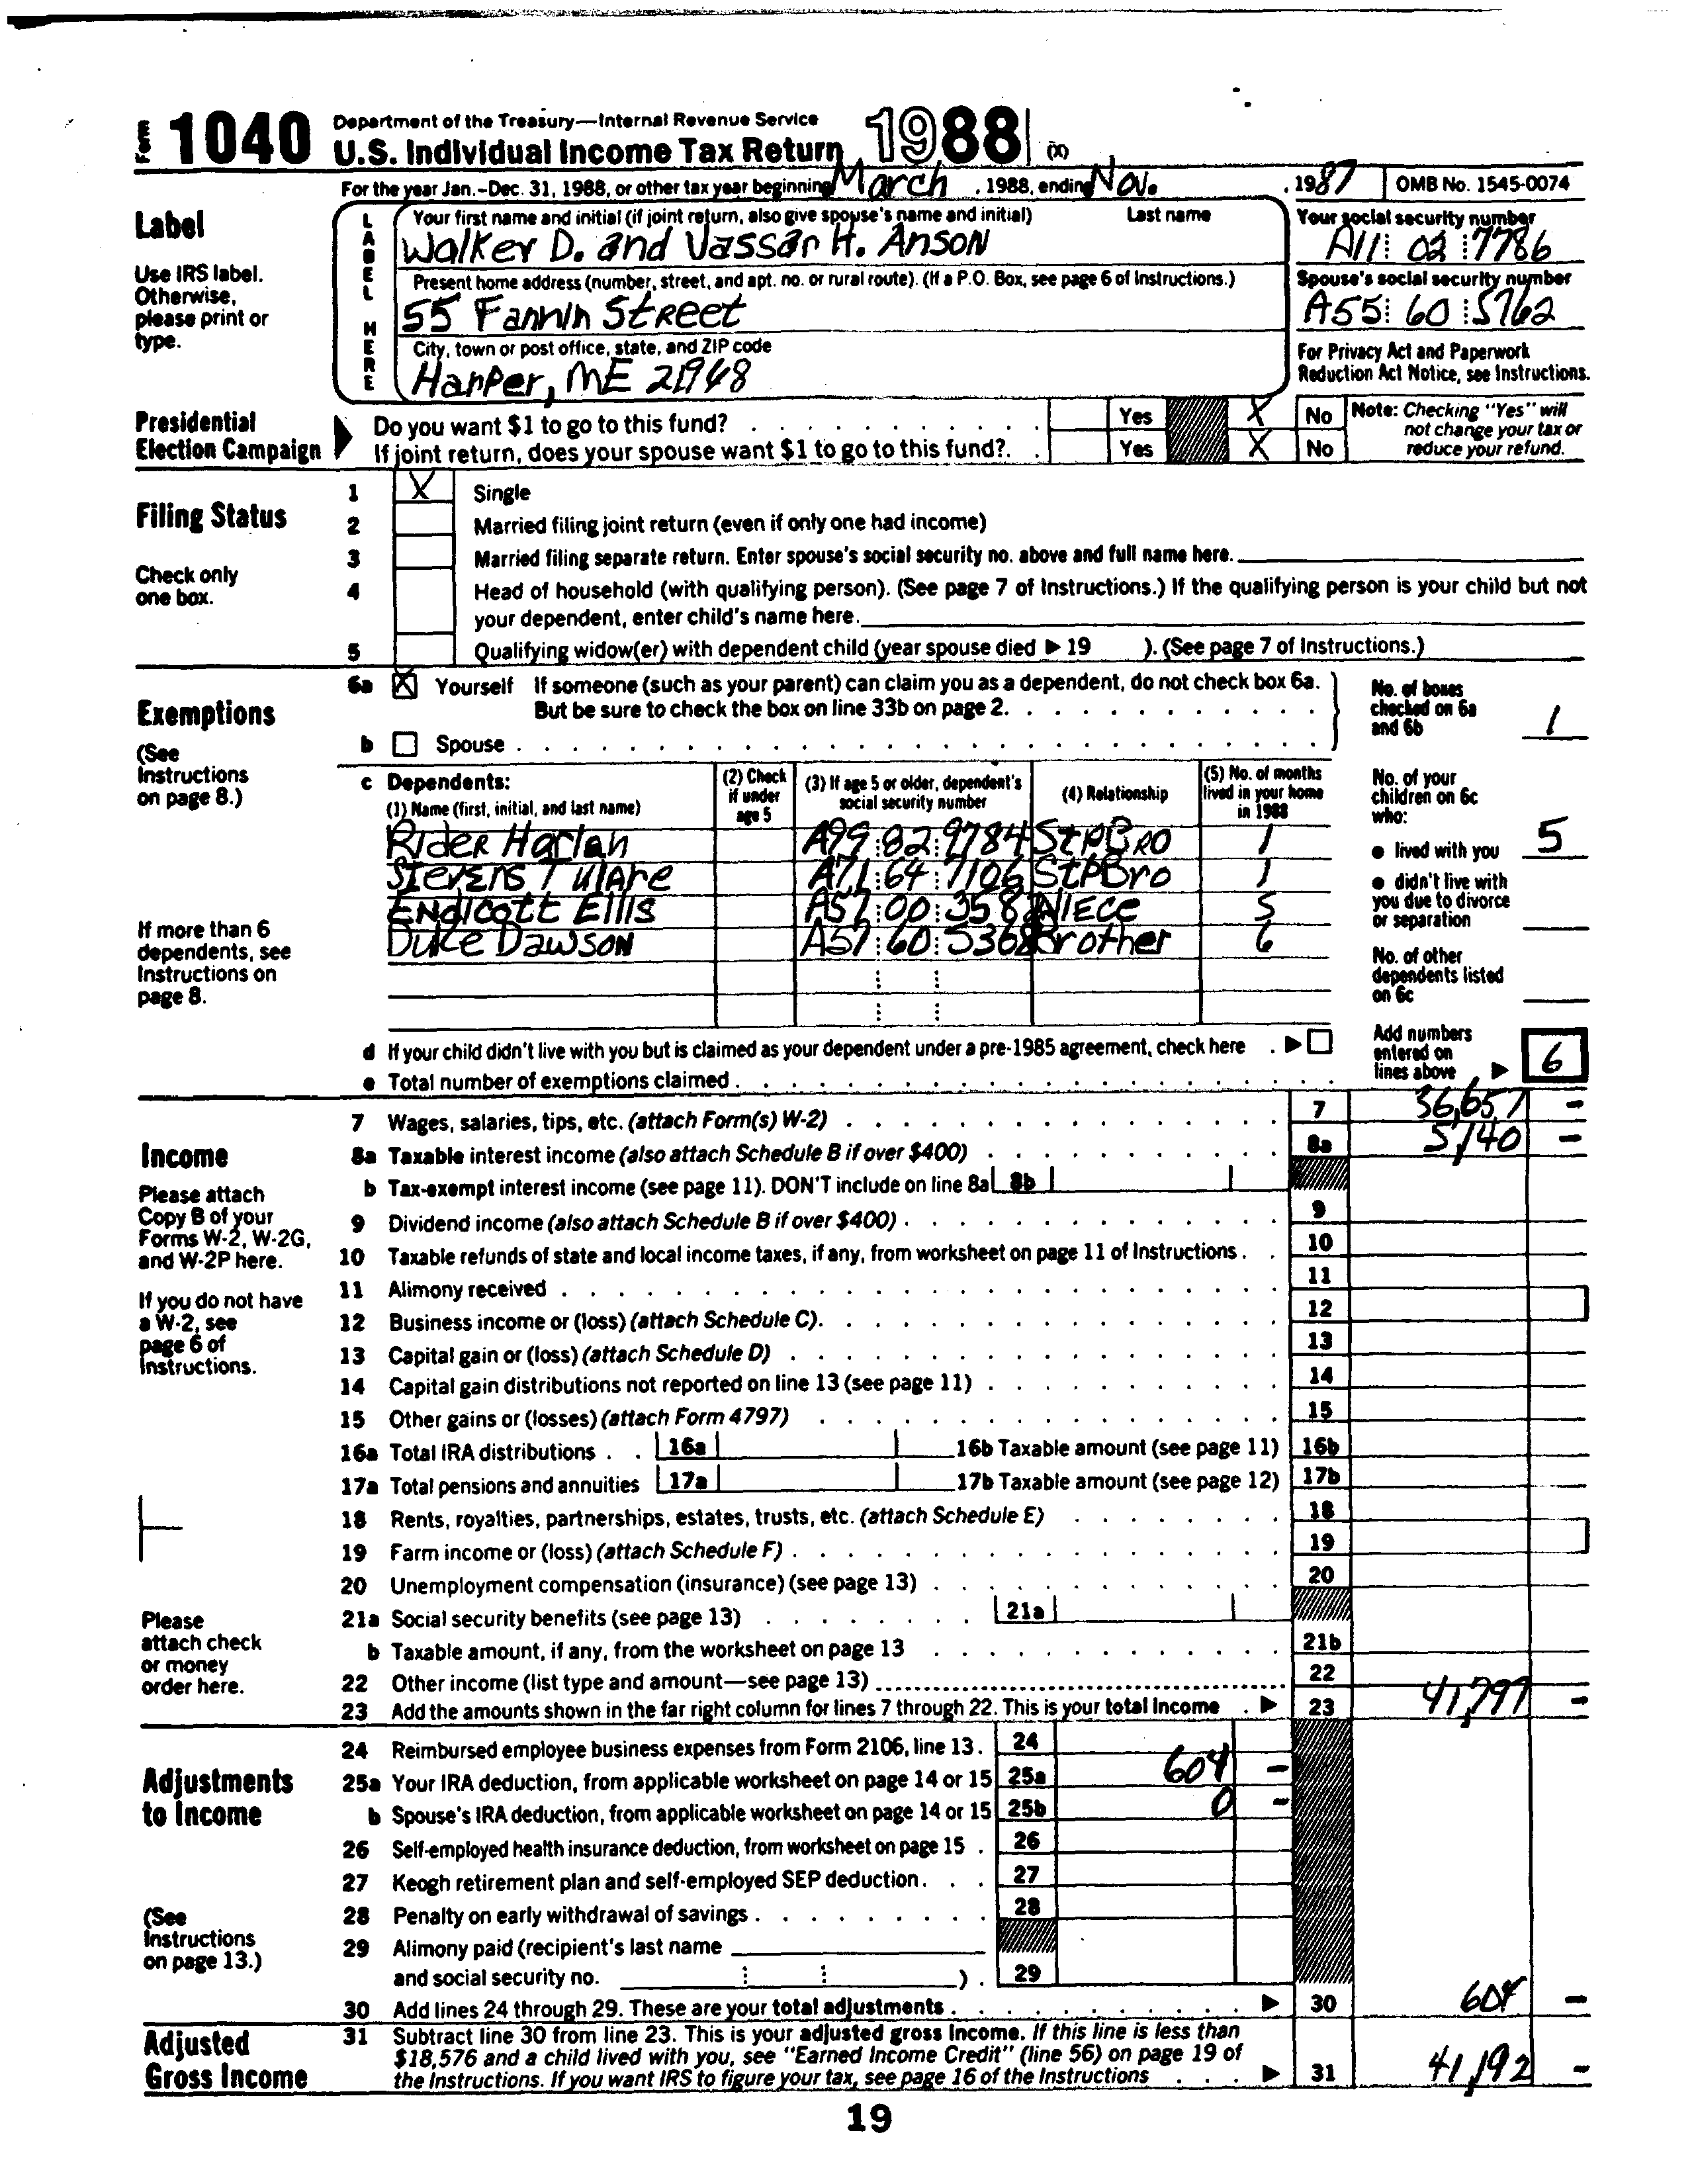 Form 1040 Department of the Treasury—Internal Revenue Service
U.S. Individual Income Tax Return 1988 (X)
For the year Jan.-Dec. 31, 1988, or other tax year beginning March , 1988, ending Nov. , 1987 OMB No. 1545-0074
Label
Use IRS label. Otherwise, please print or type.
LABEL HERE
Your first name and initial (if joint return, also give spouse's name and initial) Last name
Walker D. and Vassar H. Anson
Your social security number
A11 02 7786
Present home address (number, street, and apt. no. or rural route). (If a P.O. Box, see page 6 of Instructions.)
55 Fannin Street
Spouse's social security number
A55 60 5762
City, town or post office, state, and ZIP code
Harper, ME 21948
For Privacy Act and Paperwork Reduction Act Notice, see Instructions.
Presidential Election Campaign
Do you want $1 to go to this fund? Yes X No
If joint return, does your spouse want $1 to go to this fund? Yes X No
Note: Checking "Yes" will not change your tax or reduce your refund.
Filing Status
Check only one box.
1 X Single
2 Married filing joint return (even if only one had income)
3 Married filing separate return. Enter spouse's social security no. above and full name here.
4 Head of household (with qualifying person). (See page 7 of Instructions.) If the qualifying person is your child but not
your dependent, enter child's name here.
5 Qualifying widow(er) with dependent child (year spouse died ▶ 19 ). (See page 7 of Instructions.)
Exemptions
(See Instructions on page 8.)
6a X Yourself If someone (such as your parent) can claim you as a dependent, do not check box 6a.
But be sure to check the box on line 33b on page 2.
b Spouse
No. of boxes checked on 6a and 6b 1
c Dependents:
(1) Name (first, initial, and last name) (2) Check if under age 5 (3) If age 5 or older, dependent's social security number (4) Relationship (5) No. of months lived in your home in 1988
Rider Harlan A99 82 9784 StpBro 1
Stevens Tulare A71 64 7106 StpBro 1
Endicott Ellis A57 00 3582 Niece 5
Duke Dawson A57 60 5368 Brother 6
If more than 6 dependents, see Instructions on page 8.
No. of your children on 6c who:
● lived with you 5
● didn't live with you due to divorce or separation
No. of other dependents listed on 6c
d If your child didn't live with you but is claimed as your dependent under a pre-1985 agreement, check here ▶
e Total number of exemptions claimed
Add numbers entered on lines above ▶ 6
Income
Please attach Copy B of your Forms W-2, W-2G, and W-2P here.
If you do not have a W-2, see page 6 of Instructions.
Please attach check or money order here.
7 Wages, salaries, tips, etc. (attach Form(s) W-2) 7 36,657 -
8a Taxable interest income (also attach Schedule B if over $400) 8a 5,140 -
b Tax-exempt interest income (see page 11). DON'T include on line 8a 8b
9 Dividend income (also attach Schedule B if over $400) 9
10 Taxable refunds of state and local income taxes, if any, from worksheet on page 11 of Instructions 10
11 Alimony received 11
12 Business income or (loss) (attach Schedule C) 12
13 Capital gain or (loss) (attach Schedule D) 13
14 Capital gain distributions not reported on line 13 (see page 11) 14
15 Other gains or (losses) (attach Form 4797) 15
16a Total IRA distributions 16a 16b Taxable amount (see page 11) 16b
17a Total pensions and annuities 17a 17b Taxable amount (see page 12) 17b
18 Rents, royalties, partnerships, estates, trusts, etc. (attach Schedule E) 18
19 Farm income or (loss) (attach Schedule F) 19
20 Unemployment compensation (insurance) (see page 13) 20
21a Social security benefits (see page 13) 21a
b Taxable amount, if any, from the worksheet on page 13 21b
22 Other income (list type and amount—see page 13) 22
23 Add the amounts shown in the far right column for lines 7 through 22. This is your total income ▶ 23 41,797 -
Adjustments to Income
(See Instructions on page 13.)
24 Reimbursed employee business expenses from Form 2106, line 13. 24
25a Your IRA deduction, from applicable worksheet on page 14 or 15 25a 604 -
b Spouse's IRA deduction, from applicable worksheet on page 14 or 15 25b 0 -
26 Self-employed health insurance deduction, from worksheet on page 15 26
27 Keogh retirement plan and self-employed SEP deduction 27
28 Penalty on early withdrawal of savings 28
29 Alimony paid (recipient's last name
and social security no. ) 29
30 Add lines 24 through 29. These are your total adjustments ▶ 30 604 -
Adjusted Gross Income
31 Subtract line 30 from line 23. This is your adjusted gross income. If this line is less than
$18,576 and a child lived with you, see "Earned Income Credit" (line 56) on page 19 of
the Instructions. If you want IRS to figure your tax, see page 16 of the Instructions ▶ 31 41,192 -
19